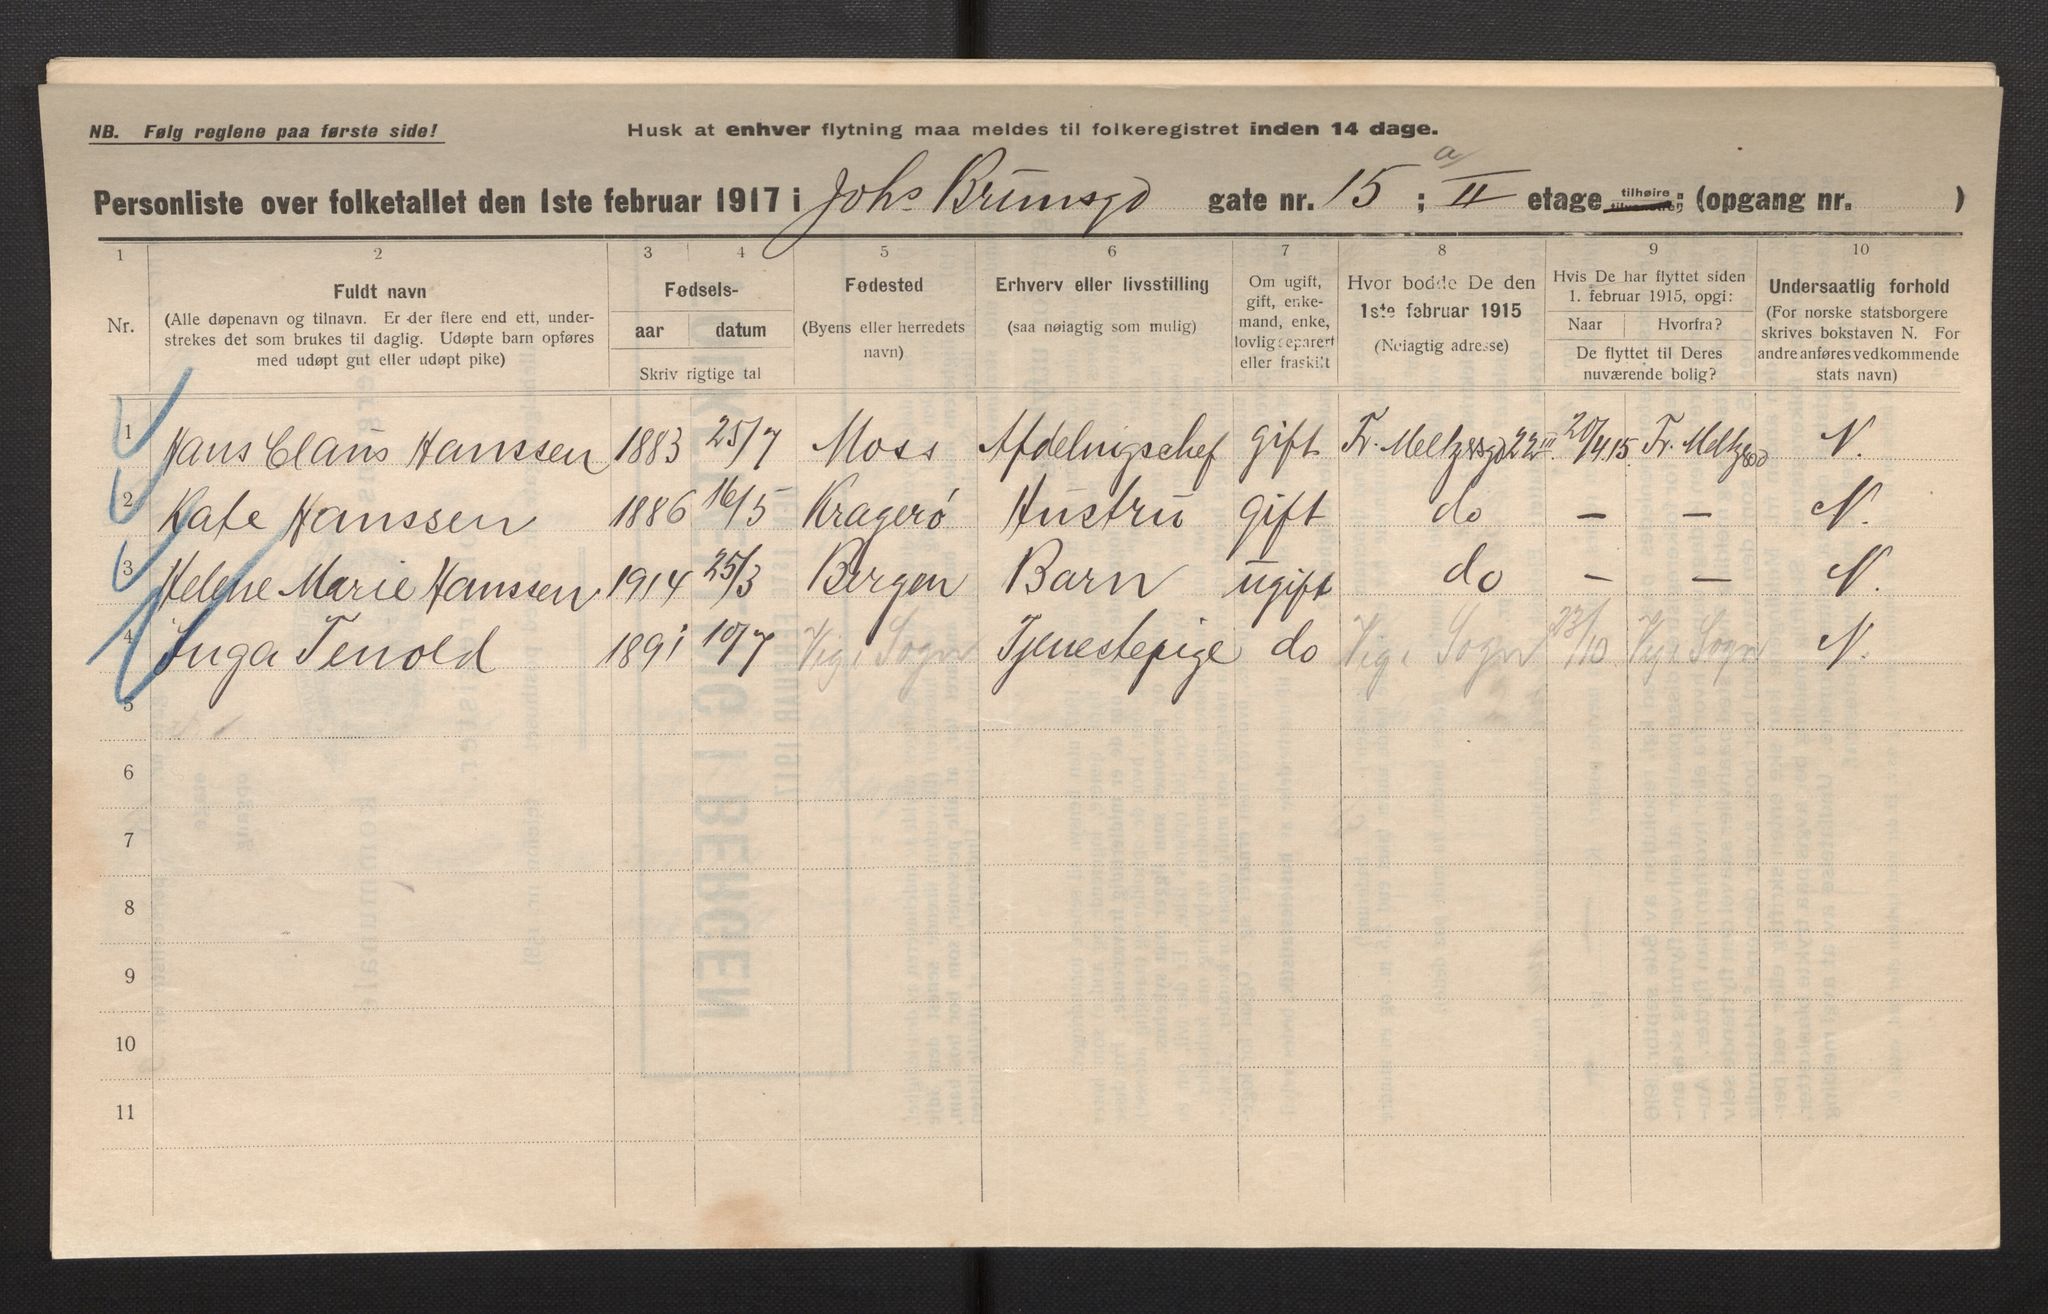 NB. Følg reglene paa første side!
Husk at enhver flytning maa meldes til folkeregistret inden 14 dage.
Personliste over folketallet den 1ste februar 1917 i Johs Brunsgd gate nr. 15 a; II etage tilhøire tilvenstre: (opgang nr. )
1 2 3 4 5 6 7 8 9 10
Nr.
Fuldt navn
(Alle døpenavn og tilnavn. Er der flere end ett, under-
strekes det som brukes til daglig. Udøpte barn opføres
med udøpt gut eller udøpt pike)
Fødsels-
aar datum
Skriv rigtige tal
Fødested
(Byens eller herredets
navn)
Erhverv eller livsstilling
(saa nøiagtig som mulig)
Om ugift,
gift, enke-
mand, enke,
lovlig separert
eller fraskilt
Hvor bodde De den
1ste februar 1915
(Nøiagtig adresse)
Hvis De har flyttet siden
1. februar 1915, opgi:
Naar Hvorfra?
De flyttet til Deres
nuværende bolig?
Undersaatlig forhold
(For norske statsborgere
skrives bokstaven N. For
andre anføres vedkommende
stats navn)
1 Hans Claus Hanssen 1883 25/7 Moss Afdelingschef gift Fr. Meltzersgd 22 III 20/4 15. Fr. Meltzgd N.
2 Kate Hanssen 1886 16/5 Kragerø Hustru gift do — — N.
3 Helene Marie Hanssen 1914 25/3 Bergen Barn ugift do — — N.
4 Inga Tenold 1891 10/7 Vig i Sogn Tjenestepige do Vig i Sogn 23/10 Vig i Sogn N.
5
6
7
8
9
10
11